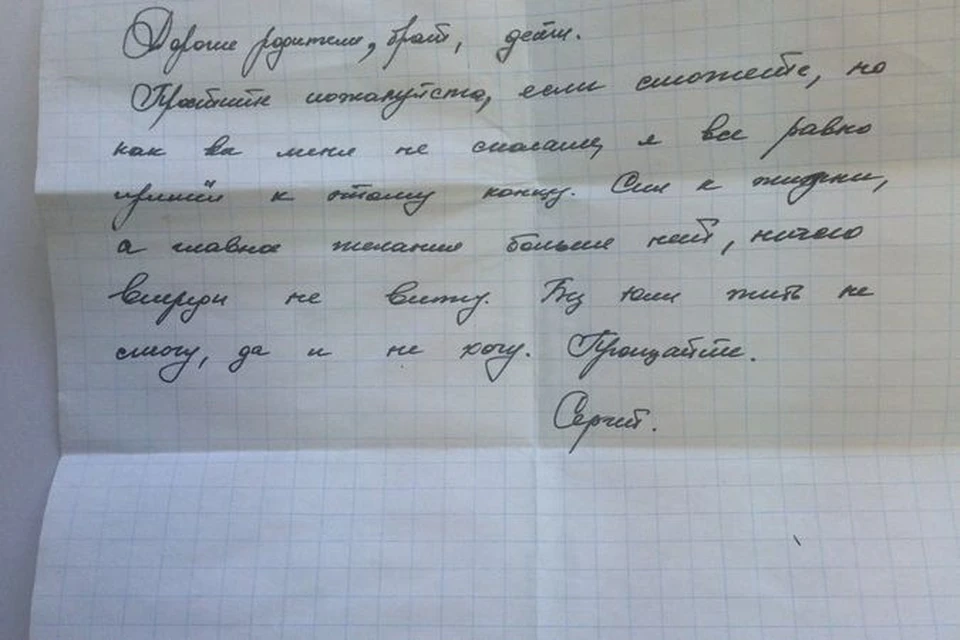 Дорогие родители, брат, дети.
Простите пожалуйста, если сможете, но
как вы меня не спасали, я все равно
пришёл к этому концу. Сил к жизни,
а главное желания больше нет, ничего
впереди не вижу. Без Юли жить не
смогу, да и не хочу. Прощайте.
Сергей.